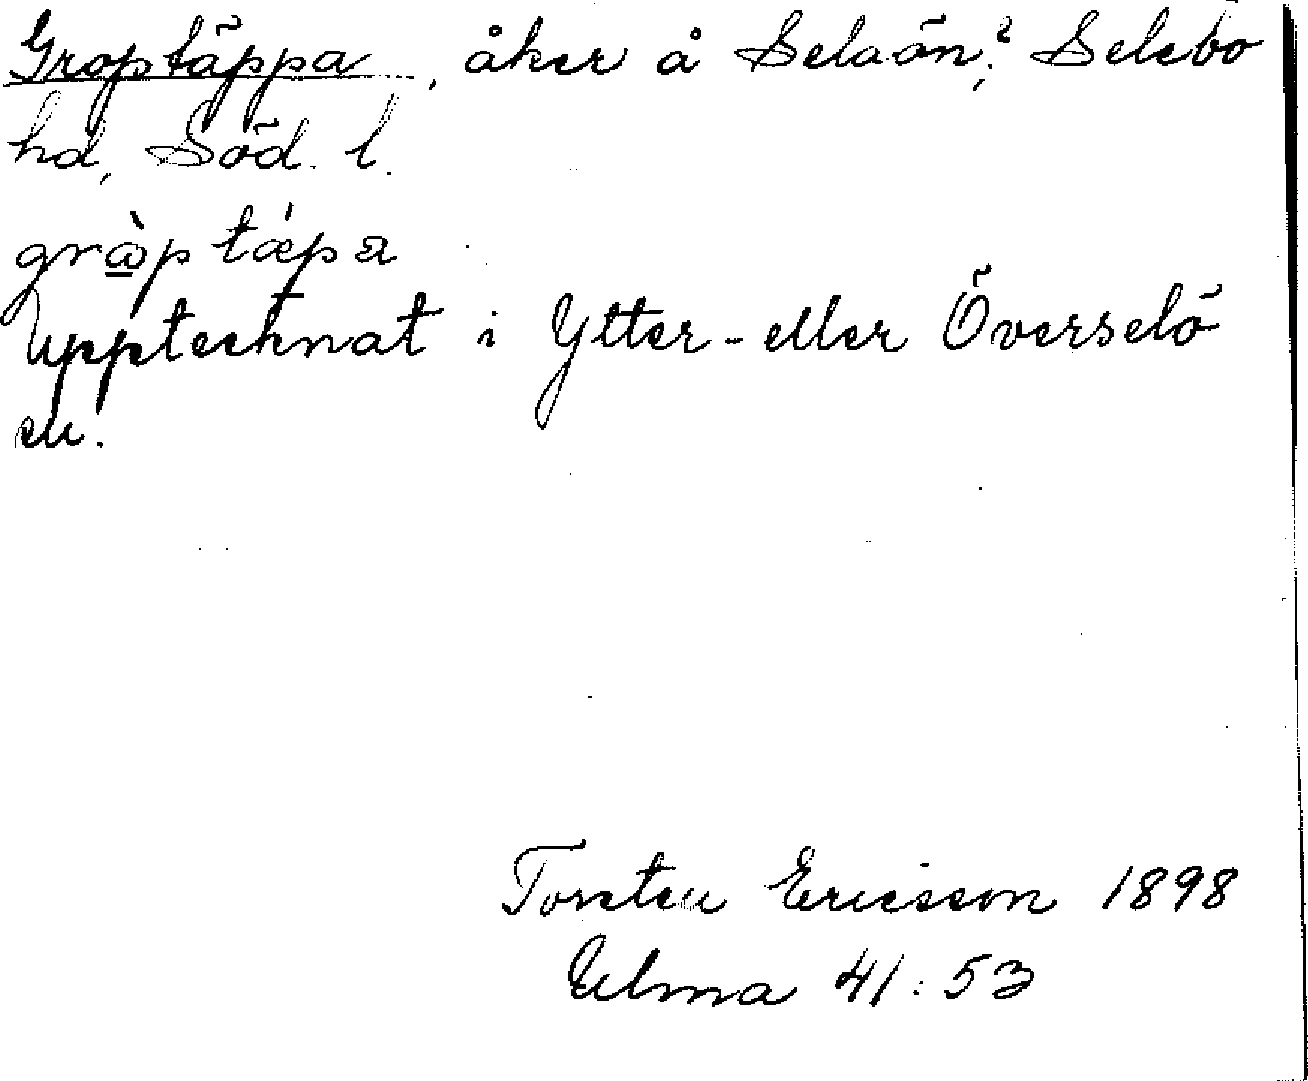 Groptäppa, åker å Selaön,? Selebo
hd, Söd. l.
grὼp tǽpa
Upptecknat i Ytter- eller Överselö
sn.
Torsten Ericsson 1898
Ulma 41:53